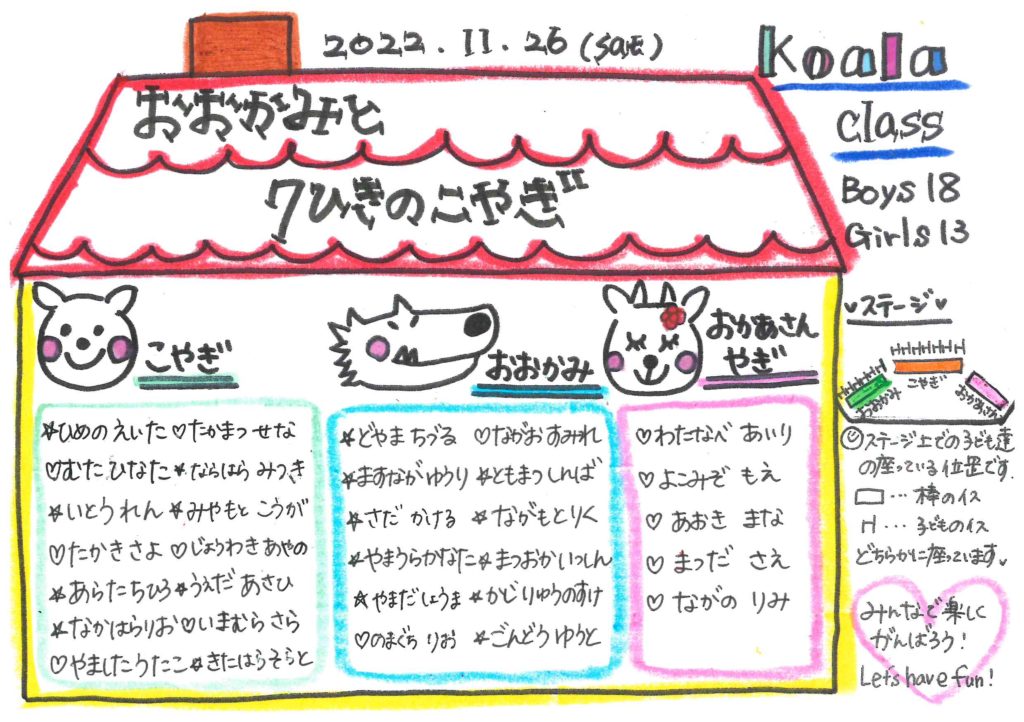 2022.11.26 (sat)
Koala
class
Boys 18
Girls 13
おおかみと
7ひきのこやぎ
こやぎ
★ひめの えいた ♡たかまつ せな
♡むた ひなた ★ならはら みつき
★いとう れん ★みやもと こうが
♡たかき さよ ♡じょうわき あやの
★あらた ちひろ ★うえだ あさひ
★なかはら りお ♡いまむら さら
♡やました うたこ ★きたはら そらと
おおかみ
★どやま ちづる ♡ながお すみれ
★ますなが ゆうり ★ともまつ しんば
★さだ かける ★ながもと りく
★やまうら かなた ★まつおか いっしん
★やまだ しょうま ★かじ りゅうのすけ
♡のまぐち りお ★ごんどう ゆうと
おかあさん
やぎ
♡わたなべ あいり
♡よこみぞ もえ
♡あおき まな
♡まつだ さえ
♡ながの りみ
♥ステージ♥
おおかみ
こやぎ
おかあさん
ステージ上での子ども達
の座っている位置です。
…棒のイス
…子どものイス
どちらかに座っています♥
みんなで楽しく
がんばろう!
Let's have fun!